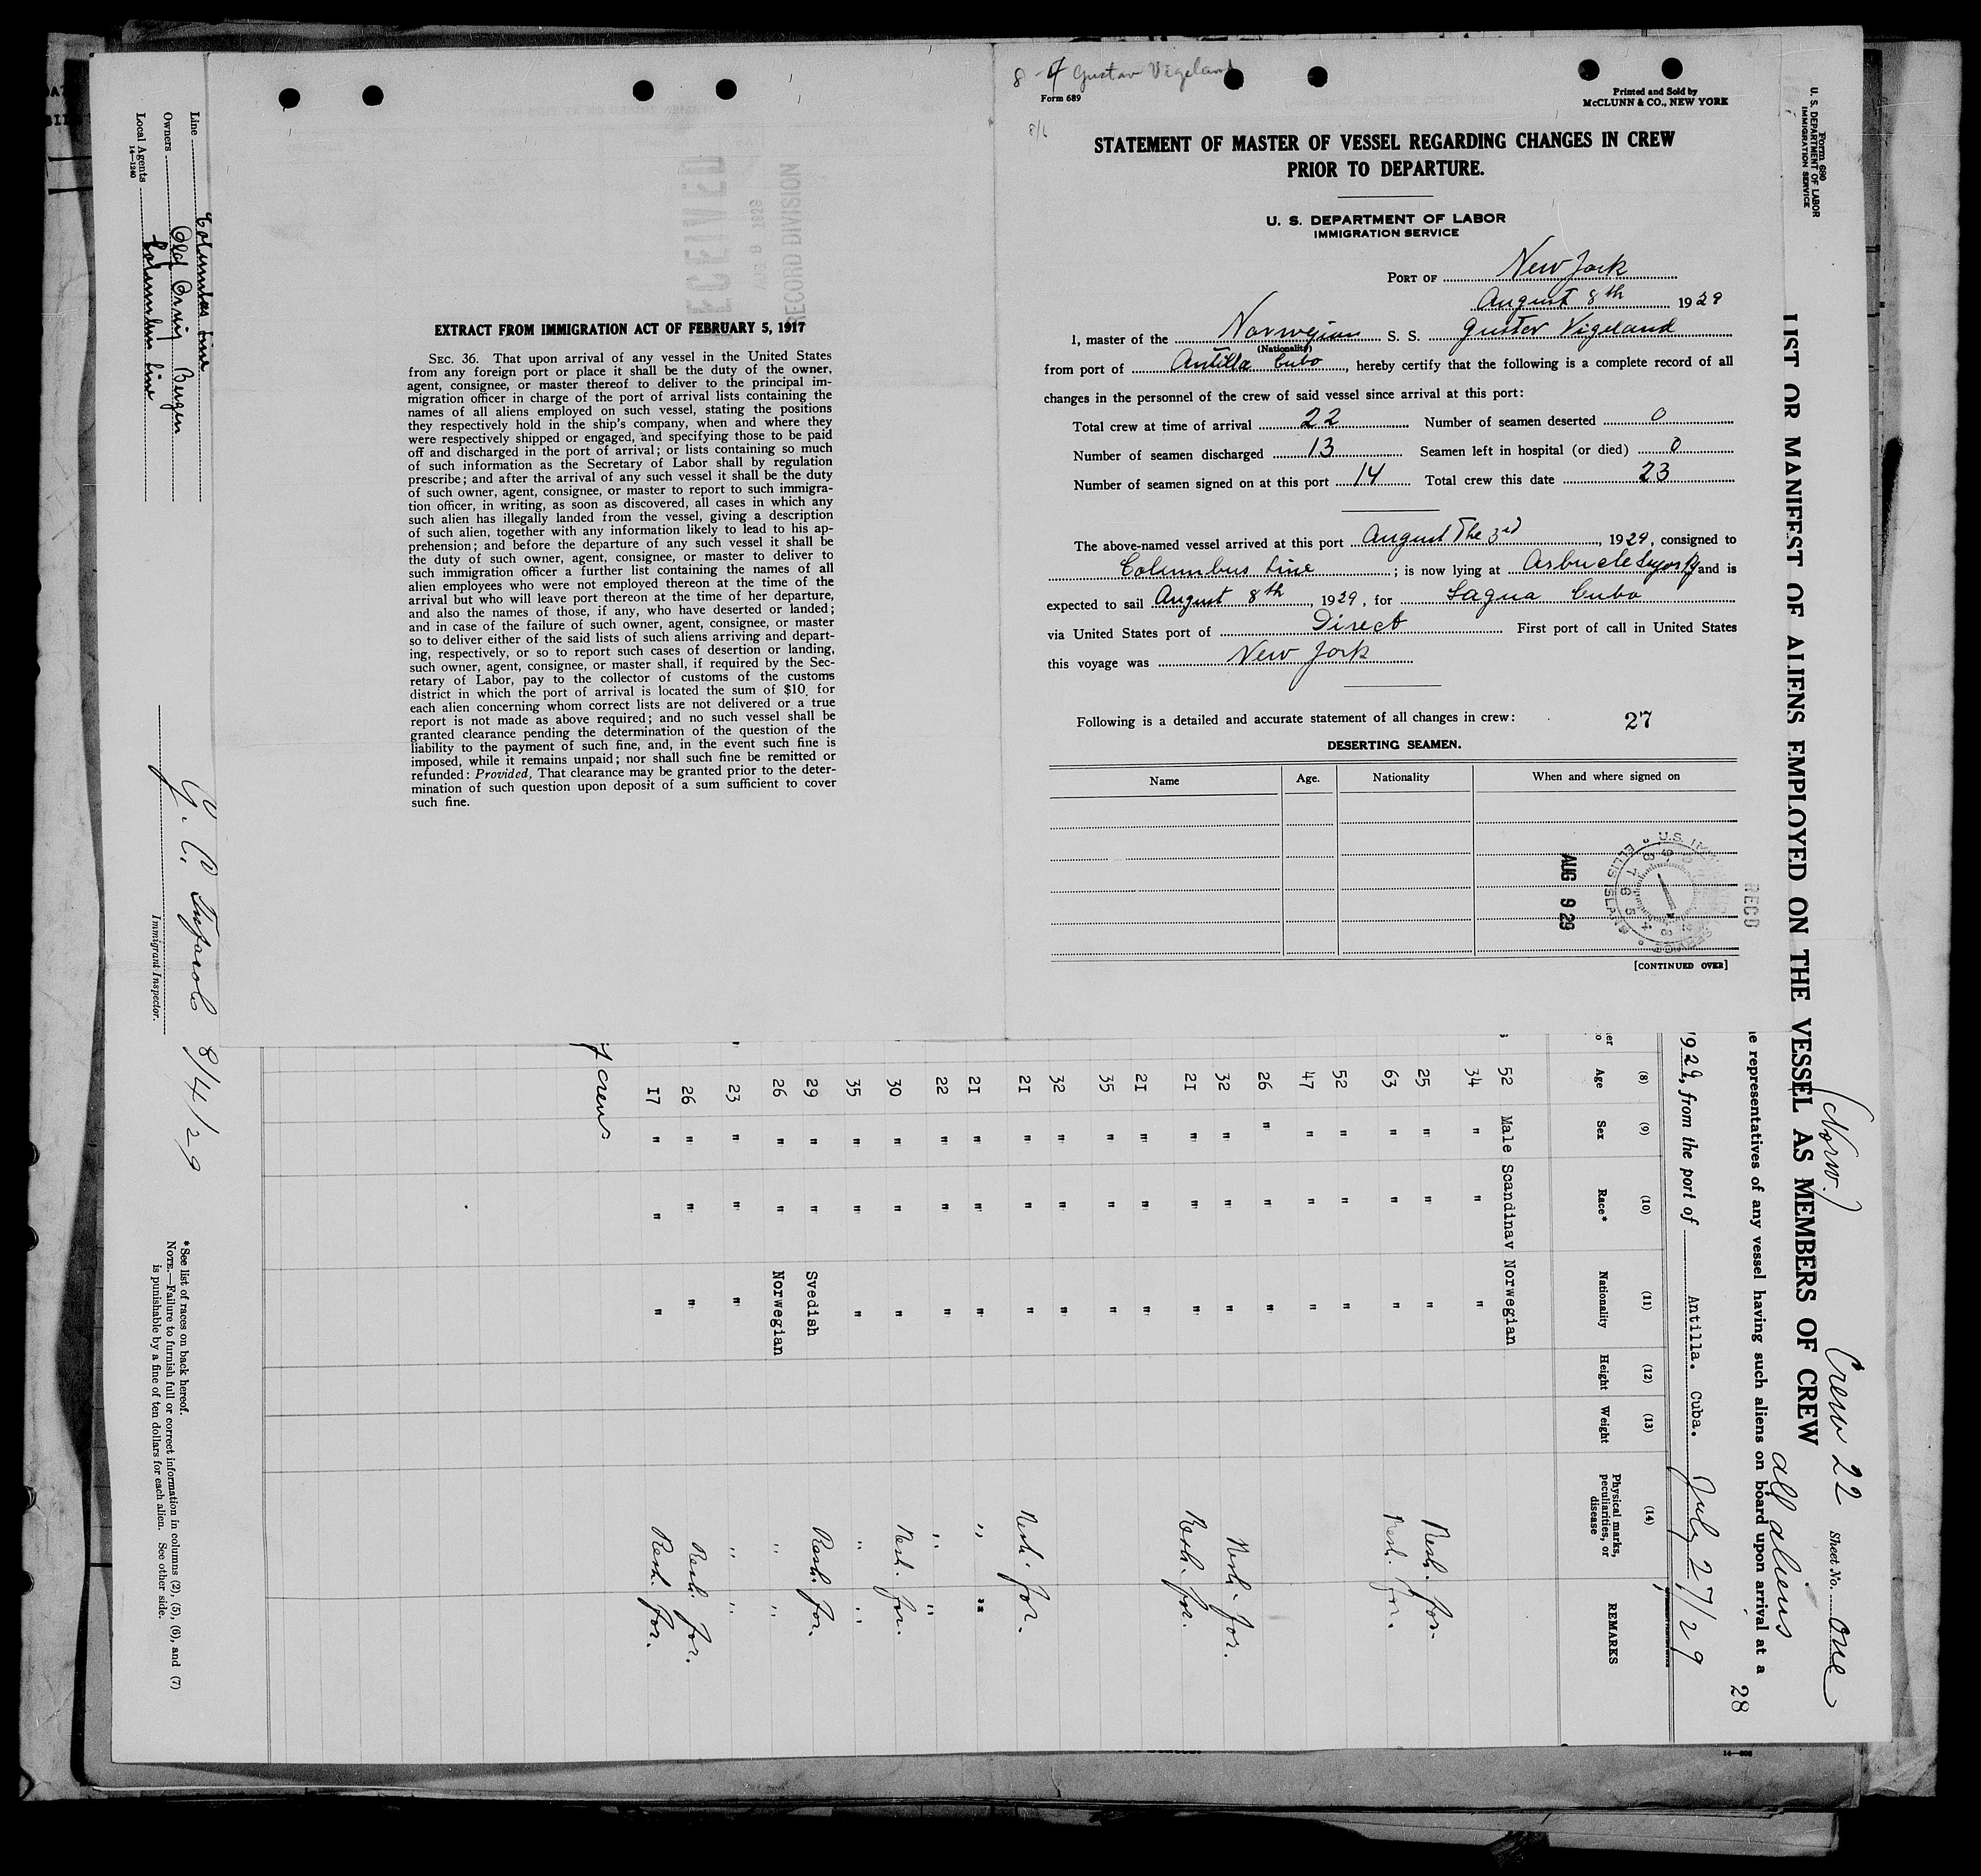 8-4 Gustav Vigeland
Form 689
8/6
Printed and Sold by
McCLUNN & CO., NEW YORK
STATEMENT OF MASTER OF VESSEL REGARDING CHANGES IN CREW
PRIOR TO DEPARTURE.
U. S. DEPARTMENT OF LABOR
IMMIGRATION SERVICE
PORT OF New York
August 8th 1929
I, master of the Norwegian S. S. Gustav Vigeland
(Nationality)
from port of Antilla Cuba, hereby certify that the following is a complete record of all
changes in the personnel of the crew of said vessel since arrival at this port:
Total crew at time of arrival 22 Number of seamen deserted 0
Number of seamen discharged 13 Seamen left in hospital (or died) 0
Number of seamen signed on at this port 14 Total crew this date 23
The above-named vessel arrived at this port August The 3rd, 1929, consigned to
Columbus Line; is now lying at and is
expected to sail August 8th, 1929, for Sagua Cuba
via United States port of Direct First port of call in United States
this voyage was New York
Following is a detailed and accurate statement of all changes in crew: 27
DESERTING SEAMEN.
Name Age. Nationality When and where signed on
U.S. IMM SERVICE ELLIS ISLAND
AUG 9 29
RECD
[CONTINUED OVER]
RECEIVED
AUG 9 1929
RECORD DIVISION
EXTRACT FROM IMMIGRATION ACT OF FEBRUARY 5, 1917
SEC. 36. That upon arrival of any vessel in the United States
from any foreign port or place it shall be the duty of the owner,
agent, consignee, or master thereof to deliver to the principal im-
migration officer in charge of the port of arrival lists containing the
names of all aliens employed on such vessel, stating the positions
they respectively hold in the ship's company, when and where they
were respectively shipped or engaged, and specifying those to be paid
off and discharged in the port of arrival; or lists containing so much
of such information as the Secretary of Labor shall by regulation
prescribe; and after the arrival of any such vessel it shall be the duty
of such owner, agent, consignee, or master to report to such immigra-
tion officer, in writing, as soon as discovered, all cases in which any
such alien has illegally landed from the vessel, giving a description
of such alien, together with any information likely to lead to his ap-
prehension; and before the departure of any such vessel it shall be
the duty of such owner, agent, consignee, or master to deliver to
such immigration officer a further list containing the names of all
alien employees who were not employed thereon at the time of the
arrival but who will leave port thereon at the time of her departure,
and also the names of those, if any, who have deserted or landed;
and in case of the failure of such owner, agent, consignee, or master
so to deliver either of the said lists of such aliens arriving and depart-
ing, respectively, or so to report such cases of desertion or landing,
such owner, agent, consignee, or master shall, if required by the Sec-
retary of Labor, pay to the collector of customs of the customs
district in which the port of arrival is located the sum of $10 for
each alien concerning whom correct lists are not delivered or a true
report is not made as above required; and no such vessel shall be
granted clearance pending the determination of the question of the
liability to the payment of such fine, and, in the event such fine is
imposed, while it remains unpaid; nor shall such fine be remitted or
refunded: Provided, That clearance may be granted prior to the deter-
mination of such question upon deposit of a sum sufficient to cover
such fine.
Form 680
U. S. DEPARTMENT OF LABOR
IMMIGRATION SERVICE
(Norw.) Crew 22 Sheet No. One
LIST OR MANIFEST OF ALIENS EMPLOYED ON THE VESSEL AS MEMBERS OF CREW
all aliens
e representatives of any vessel having such aliens on board upon arrival at a
28
1929, from the port of Antilla. Cuba. July 27/29
(8) (9) (10) (11) (12) (13) (14)
Age Sex Race* Nationality Height Weight Physical marks, peculiarities, or disease REMARKS
52 Male Scandinav Norwegian
34 " " "
25 " " " Resh. for.
63 " " " Resh. for.
52 " " "
47 " " "
26 " " "
32 " " " Resh. for.
21 " " " Resh. for.
21 " " "
35 " " "
32 " " "
21 " " " Resh. for.
21 " " " " "
22 " " " " "
30 " " " Resh. for.
35 " " " " "
29 " " Svedish Resh. for.
26 " " Norwegian " "
23 " " " " "
26 " " " Resh. for.
17 " " " Resh. for.
Line Columbus Line
Owners Bergen
Local Agents Columbus Line
14-1240
8/4/29
Immigrant Inspector.
* See list of races on back hereof.
NOTE.—Failure to furnish full or correct information in columns (2), (5), (6), and (7)
is punishable by a fine of ten dollars for each alien. See other side.